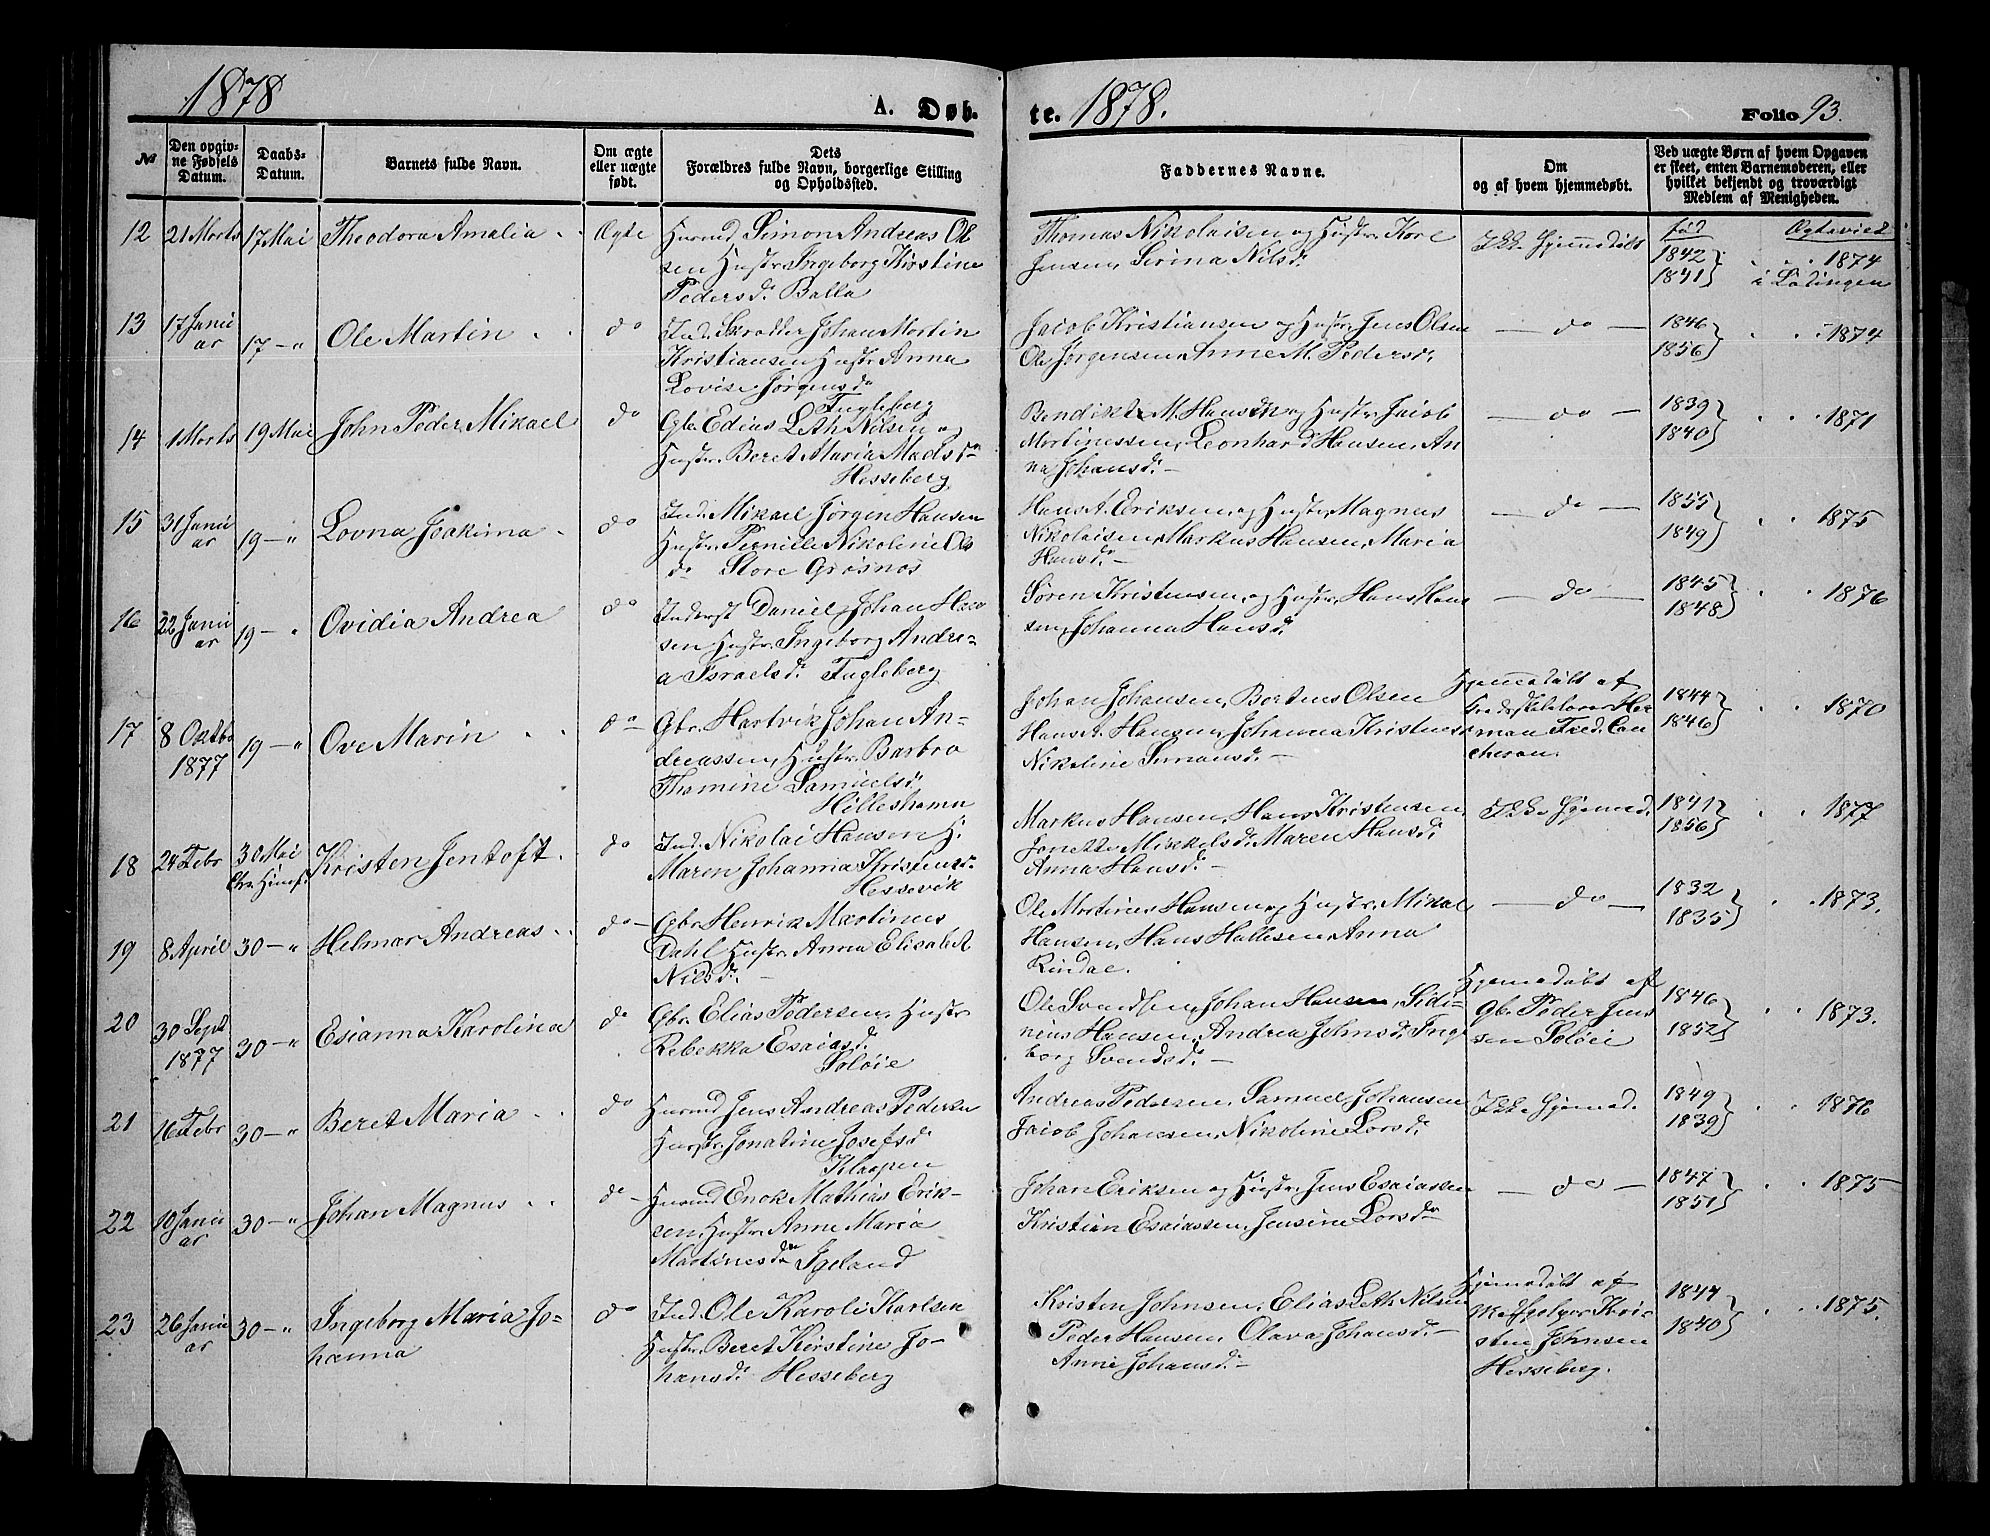 1878
A. Døb-
te. 1878.
Folio 93.
№
Den opgiv-
ne Fødsels
Datum.
Daabs-
Datum.
Barnets fulde Navn.
Om ægte
eller uægte
født.
Dets
Forældres fulde Navn, borgerlige Stilling
og Opholdssted.
Faddernes Navne.
Om
og af hvem hjemmedøbt.
Ved uægte Børn af hvem Opgaven
er skeet, enten Barnemoderen, eller
hvilket bekjendt og troværdigt
Medlem af Menigheden.
12 21 Marts 17 Mai Theodora Amalia Ægte
Husmd Simon Andreas Ol
sen Hustr. Ingeborg Kirstine
Pedersd. Balla
Thomas Nikolaisen og Hustr. Kore
Jensen, Serina Nilsd.
Ikke Hjemmedøbt
fød Ægteviet
1842 1874
1841 i Lødingen
13 17 Janu
ar 17 — " Ole Martin do
Ind. Skrædder Johan Martin
Kristiansen Hustr. Anna
Lovise Jørgensd.
Fugleberg
Jacob Kristiansen og Hustr. Jens Olsen
Ole Jørgensen, Anne M. Pedersd.
— do —
1846 1874
1856
14 1 Marts 19 Mai John Peder Mikael do
Gbr. Edias Leth Nilsen og
Hustr. Beret Maria Madsd.
Hesseberg
Bendikt M. Hansen og Hustr. Jacob
Martinessen, Leonhard Hansen, An
na Johansd. —
— do —
1839 1871
1840
15 31 Janu
ar 19 — " Lovna Joakima do
Ind. Mikael Jørgen Hansen
Hustr. Pernille Nikoline Ols
d. Store Grøsnes
Hans A. Eriksen, og Hustr. Magnus
Nikolaisen, Markus Hansen, Maria
Hansd. —
— do —
1855 1875
1849
16 22 Janu
ar 19 — " Ovidia Andrea do
Inderst Daniel Johan Han
sen Hustr. Ingeborg Andre-
a Israelsd. Fugleberg
Søren Kristensen, og Hustr. Hans Han
sen, Johanna Hansd.
— do —
1845 1876
1848
17 8 Oktbr
1877 19 — " Ove Marin do
Gbr. Hartvik Johan An-
dreassen, Hustr. Barbro
Thomine Samuelsd.
Hølleshamn
Johan Johansen, Bertens Olsen
Hans A. Hansen, Johanna Kristens
Nikoline Simonsd. —
Hjemmedøbt af
man Fred.
1844 1870
1846
18 24 Febr 30 Mai
Chr. Himf. Kristen Jentoft do
Ind. Nikolai Hansen H.
Maren Johanna Kristensd.
Hessevik
Markus Hansen, Hans Kristensen,
Jonette Mikkelsd. Maren Hansd.
Anna Hansd. —
Ikke Hjemmed.
1841 1877
1856
19 8 April 30 — " Helmar Andreas do
Gbr. Henrik Martinus
Dahl Hustr. Anna Elisabet
Nilsd. —
Ole Martines Hansen og Hustr. Mikal
Hansen, Hans Hallesen, Anna
Rindal.
— do —
1832 1873.
1835
20 30 Sept
1877 30 — " Esianna Karolina do
Gbr. Elias Pedersen, Hustr
Rebekka Esaiasd.
Soløie
Ole Svendsen, Johan Hansen, Sidi-
nius Hansen, Andrea Johnsd. Inge
borg Svendsd. —
Hjemmedøbt af
Gbr. Peder Jens
sen Soløie
1846 1873.
1852
21 16 Febr 30 — " Beret Maria do
Husmd Jens Andreas Pedersen
Hustr. Jonatine Josefsd.
Klaapen
Andreas Pedersen, Samuel Johansen
Jacob Johansen, Nikoline Larsd.
Ikke Hjemmed.
1849 1876
1839
22 10 Janu
ar 30 — " Johan Magnus do
Husmd Enok Mathias Erik-
sen, Hustr. Anne Maria
Martinesd. Igeland
Johan Eriksen og Hustr. Jens Esaiassen
Kristian Esaiassen, Jensine Larsd.
— do —
1847 1875
1851
23 26 Janu
ar 30 — " Ingeborg Maria Jo-
hanna do
Ind. Ole Karoli Karlsen
Hustr. Beret Kirstine Jo-
hansd. Hesseberg
Kristen Johnsen, Elias Leth Nilsen
Peder Hansen, Olava Johansd. —
Anne Johansd. —
Hjemmedøbt af
Kri-
sten Johnsen
Hesseberg.
1844 1875.
1840